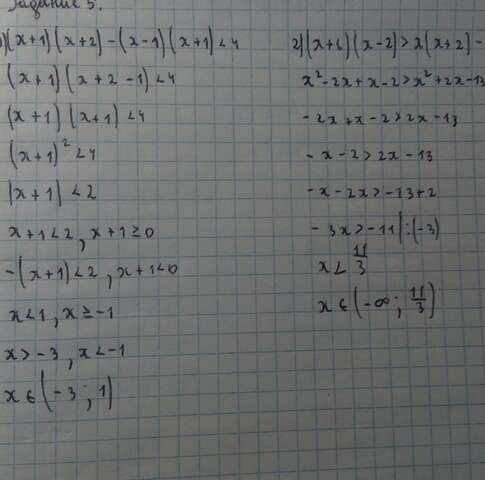 Задание 5.
1) (x+1)(x+2)-(x-1)(x+1)<4
(x+1)(x+2-1)<4
(x+1)(x+1)<4
(x+1)²<4
|x+1|<2
x+1<2, x+1≥0
-(x+1)<2, x+1<0
x<1, x≥-1
x>-3, x<-1
x∈(-3; 1)
2) (x+1)(x-2)>x(x+2)-
x²-2x+x-2>x²+2x-13
-2x+x-2>2x-13
-x-2>2x-13
-x-2x>-13+2
-3x>-11 |:(-3)
x<11/3
x∈(-∞; 11/3)